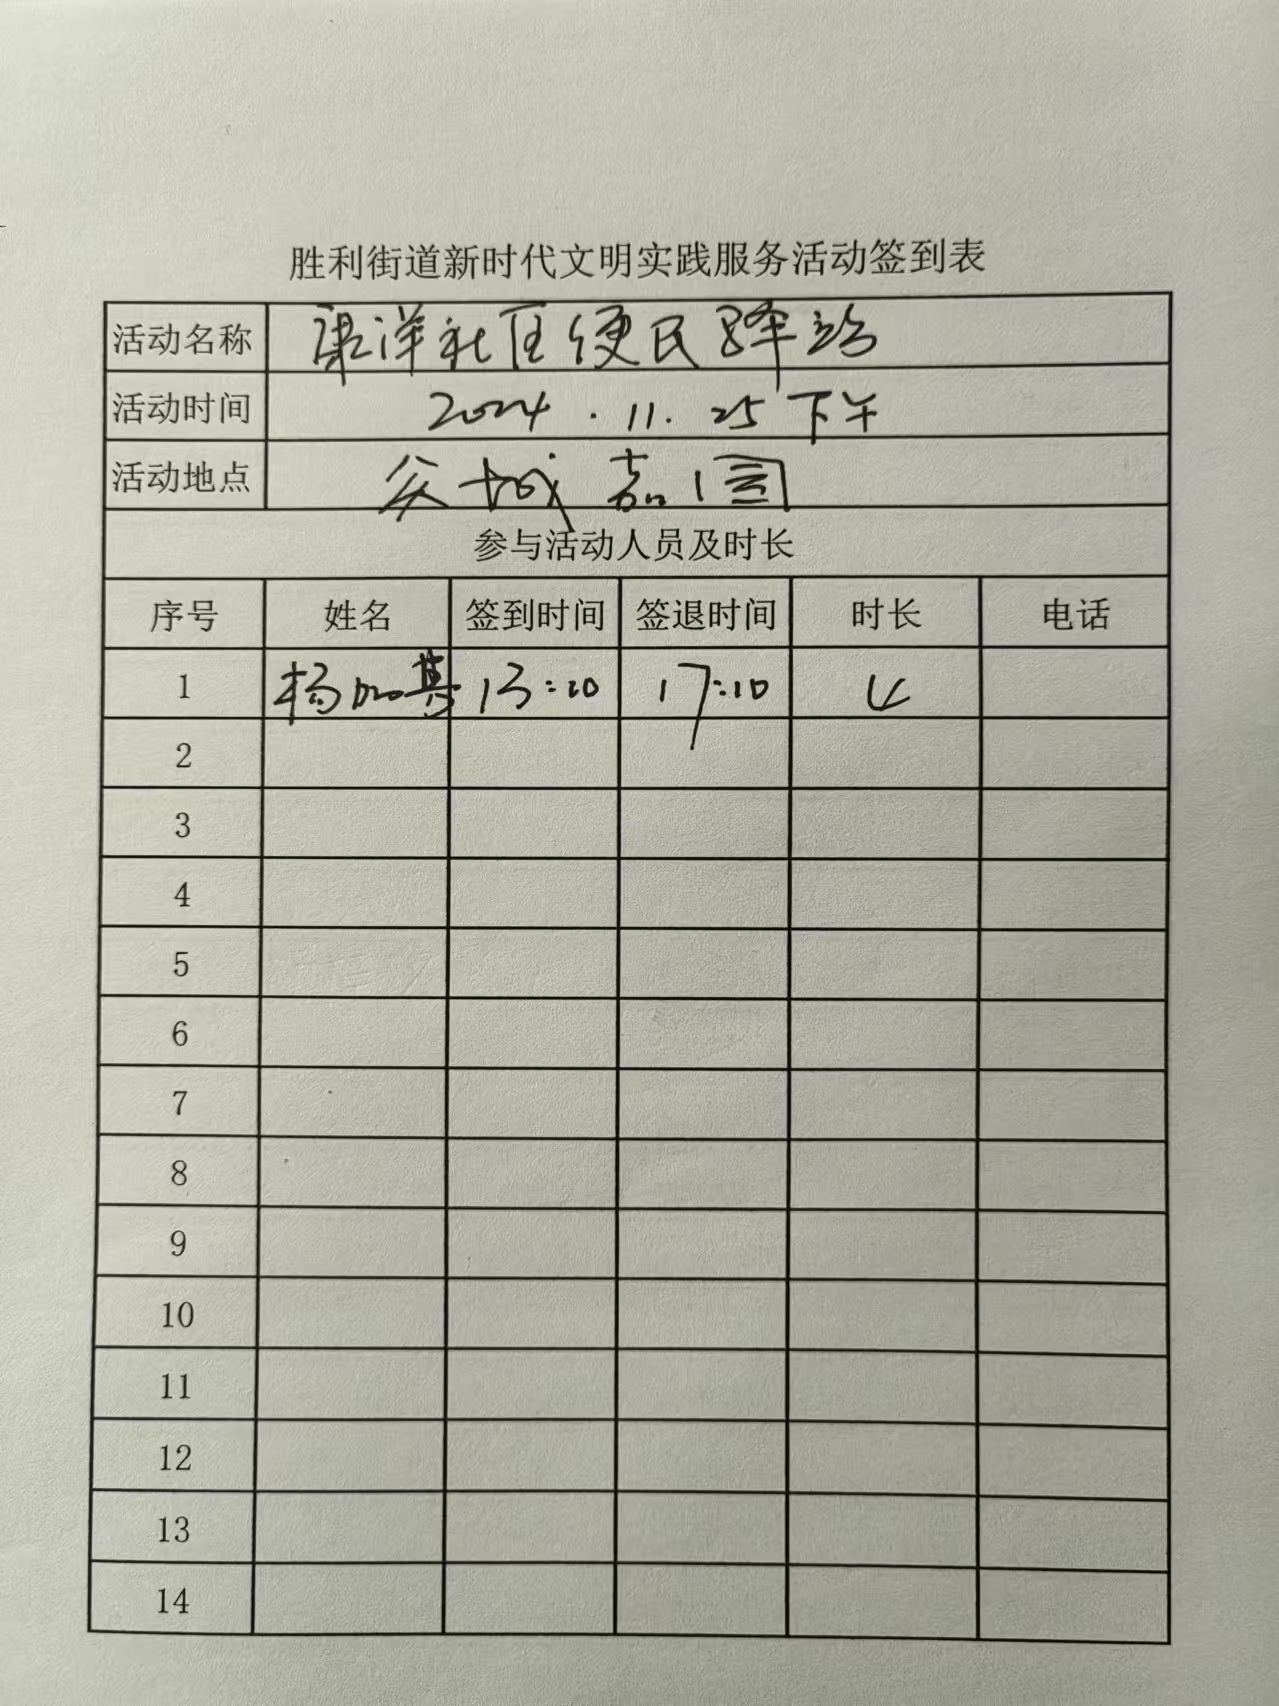 胜利街道新时代文明实践服务活动签到表
活动名称 康洋社区便民驿站
活动时间 2024.11.25下午
活动地点 谷城嘉园
参与活动人员及时长
序号 姓名 签到时间 签退时间 时长 电话
1 杨加其 13:10 17:10 4
2
3
4
5
6
7
8
9
10
11
12
13
14